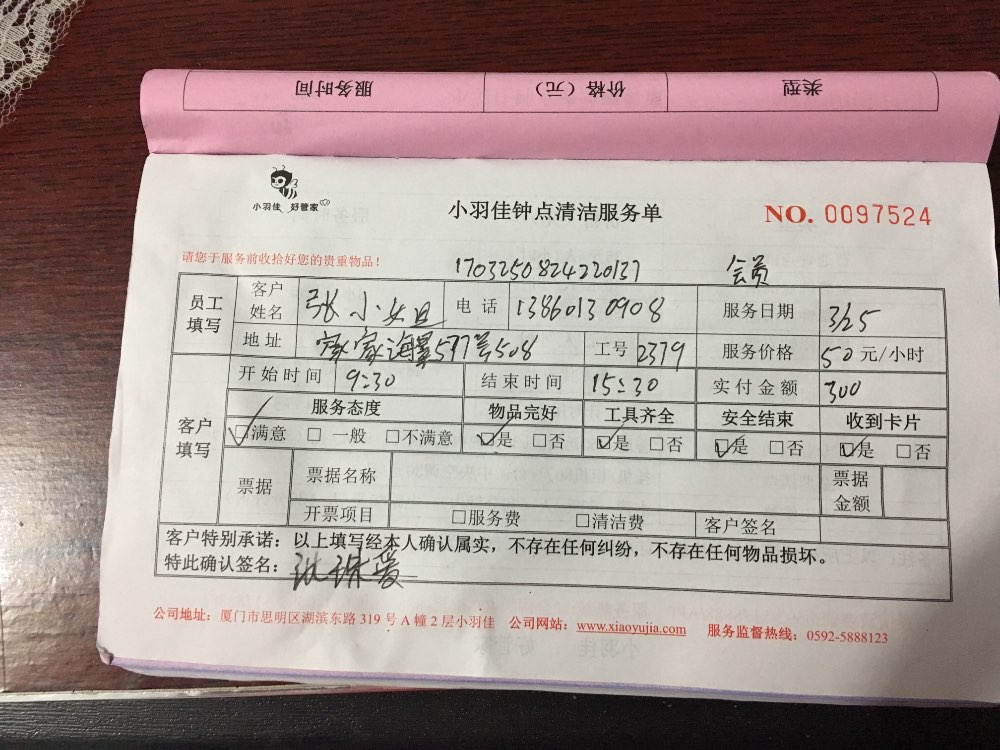 类型 价格（元） 服务时间
小羽佳 好管家
小羽佳钟点清洁服务单 NO. 0097524
请您于服务前收拾好您的贵重物品！
1703250824220137 会员
员工填写 客户姓名 张小姐 电话 13860130908 服务日期 3/25
地址 海景577号508 工号 2379 服务价格 50元/小时
客户填写 开始时间 9:30 结束时间 15:30 实付金额 300
服务态度 物品完好 工具齐全 安全结束 收到卡片
☑满意 □一般 □不满意 ☑是 □否 ☑是 □否 ☑是 □否 ☑是 □否
票据 票据名称 票据金额
开票项目 □服务费 □清洁费 客户签名
客户特别承诺：以上填写经本人确认属实，不存在任何纠纷，不存在任何物品损坏。
特此确认签名：
公司地址：厦门市思明区湖滨东路 319 号 A 幢 2 层小羽佳 公司网站：www.xiaoyujia.com 服务监督热线：0592-5888123